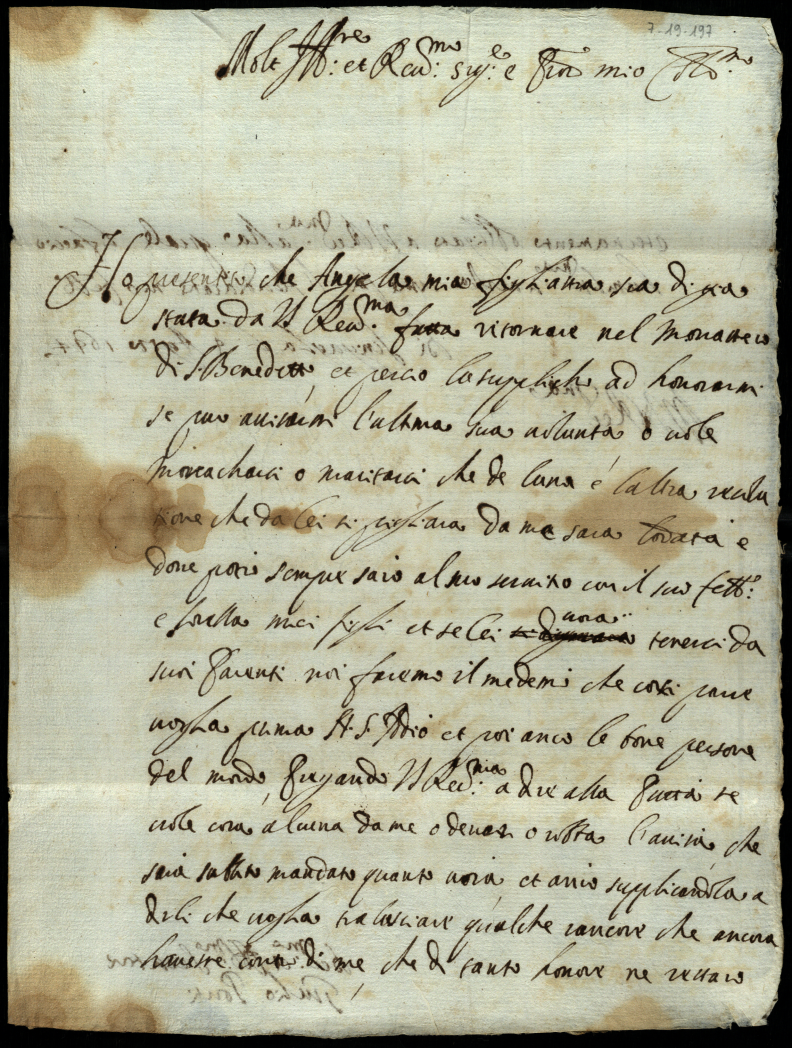 7-19-197
Molt Ill.re et Rev.mo sig.e e Pron mio
Ho presentito che Angela mia figliastra sia di gia
stata da VS Rev.ma fatta ritornare nel Monastero
di S. Benedetto, et percio la supplicho ad honorarmi
se puo avisarmi l'ultima sua volunta o vole
monacharsi o maritarsi che de luna é laltra resolu
tione che da lei si pigliara da me sara lodata e
dove potro sempre saro al suo servitio con il suo
e sorella miei figli et se lei vora tenersi da
suoi Parenti noi faremo il medemo che cosi pare
voglia prima N. S. Iddio et poi anco le bone persone
del mondo, Pregando VS Rev.ma a dire alla Putta se
vole cosa alcuna da me o denari o robba l'avisa, che
sara subbito mandato quanto vora et ancio supplicandola a
dirli che voglia tralasciare qualche rancore che ancora
havesse contra di me, che di tanto honore ne restaro